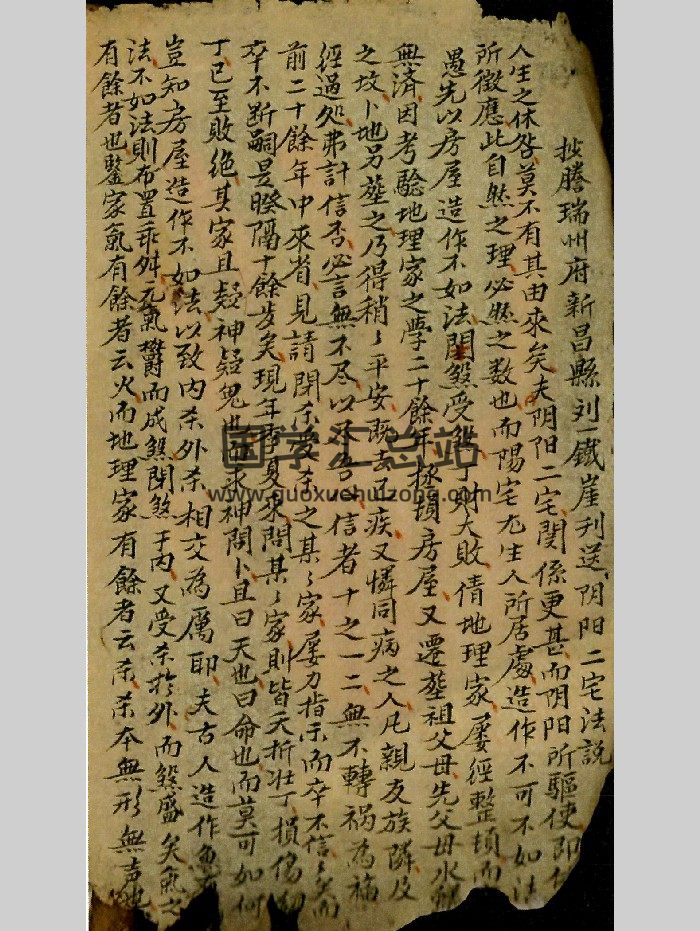 抄謄瑞州府新昌縣刘一鐵崖刊送阴阳二宅法説
人生之休咎莫不有其由來矣夫阴阳二宅関係更甚而阴阳所驅使即
所徵應此自然之理必然之数也而陽宅尤生人所居處造作不可不如法
愚先以房屋造作不如法開煞受煞丁財大敗倩地理家屡經整頓而
無済因考騐地理家之學二十餘年拯頓房屋又遷塟祖父母先父母水
之坟卜地另塟之乃得稍ミ平安既去己疾又憐同病之人凡親友族隣及
經過処弗計信否必言無不尽以不吝信者十之一二無不轉祸為福
前二十餘年中來省見請閉杀受杀之某ミ家屡力指示而卒不信ミ矣而
卒不断嗣是暌隔十餘岁矣現年春夏來問某ミ家則皆夭折壮丁損傷
丁已至敗絶其家且疑神疑鬼也求神問卜且曰天也曰命也而莫可如何
豈知房屋造作不如法以致内杀外杀相交為厲耶夫古人造作
法不如法則布置乖舛元氣欝而成煞開煞于内又受杀扵外而煞盛矣氣之
有餘者也鑒家氣有餘者云火而地理家有餘者云杀杀本無形無声
国学汇总站
www.guoxuehuizong.com